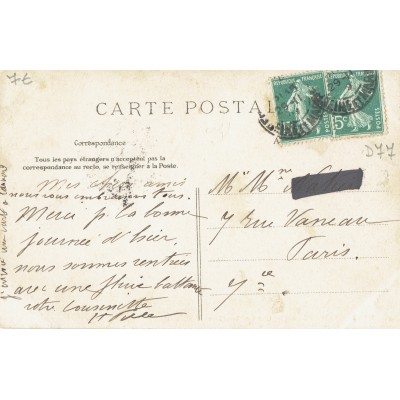 7€
CARTE POSTALE
RÉPUBLIQUE FRANÇAISE
POSTES
5c
D77
Correspondance
Tous les pays étrangers n'acceptent pas la
correspondance au recto, se renseigner à la Poste.
Mes chers amis
nous vous embrassons tous.
Merci p. la bonne
journée d'hier,
nous sommes rentrés
avec une pluie battante
votre
M. Mme
7 rue Vaneau
Paris.
7e